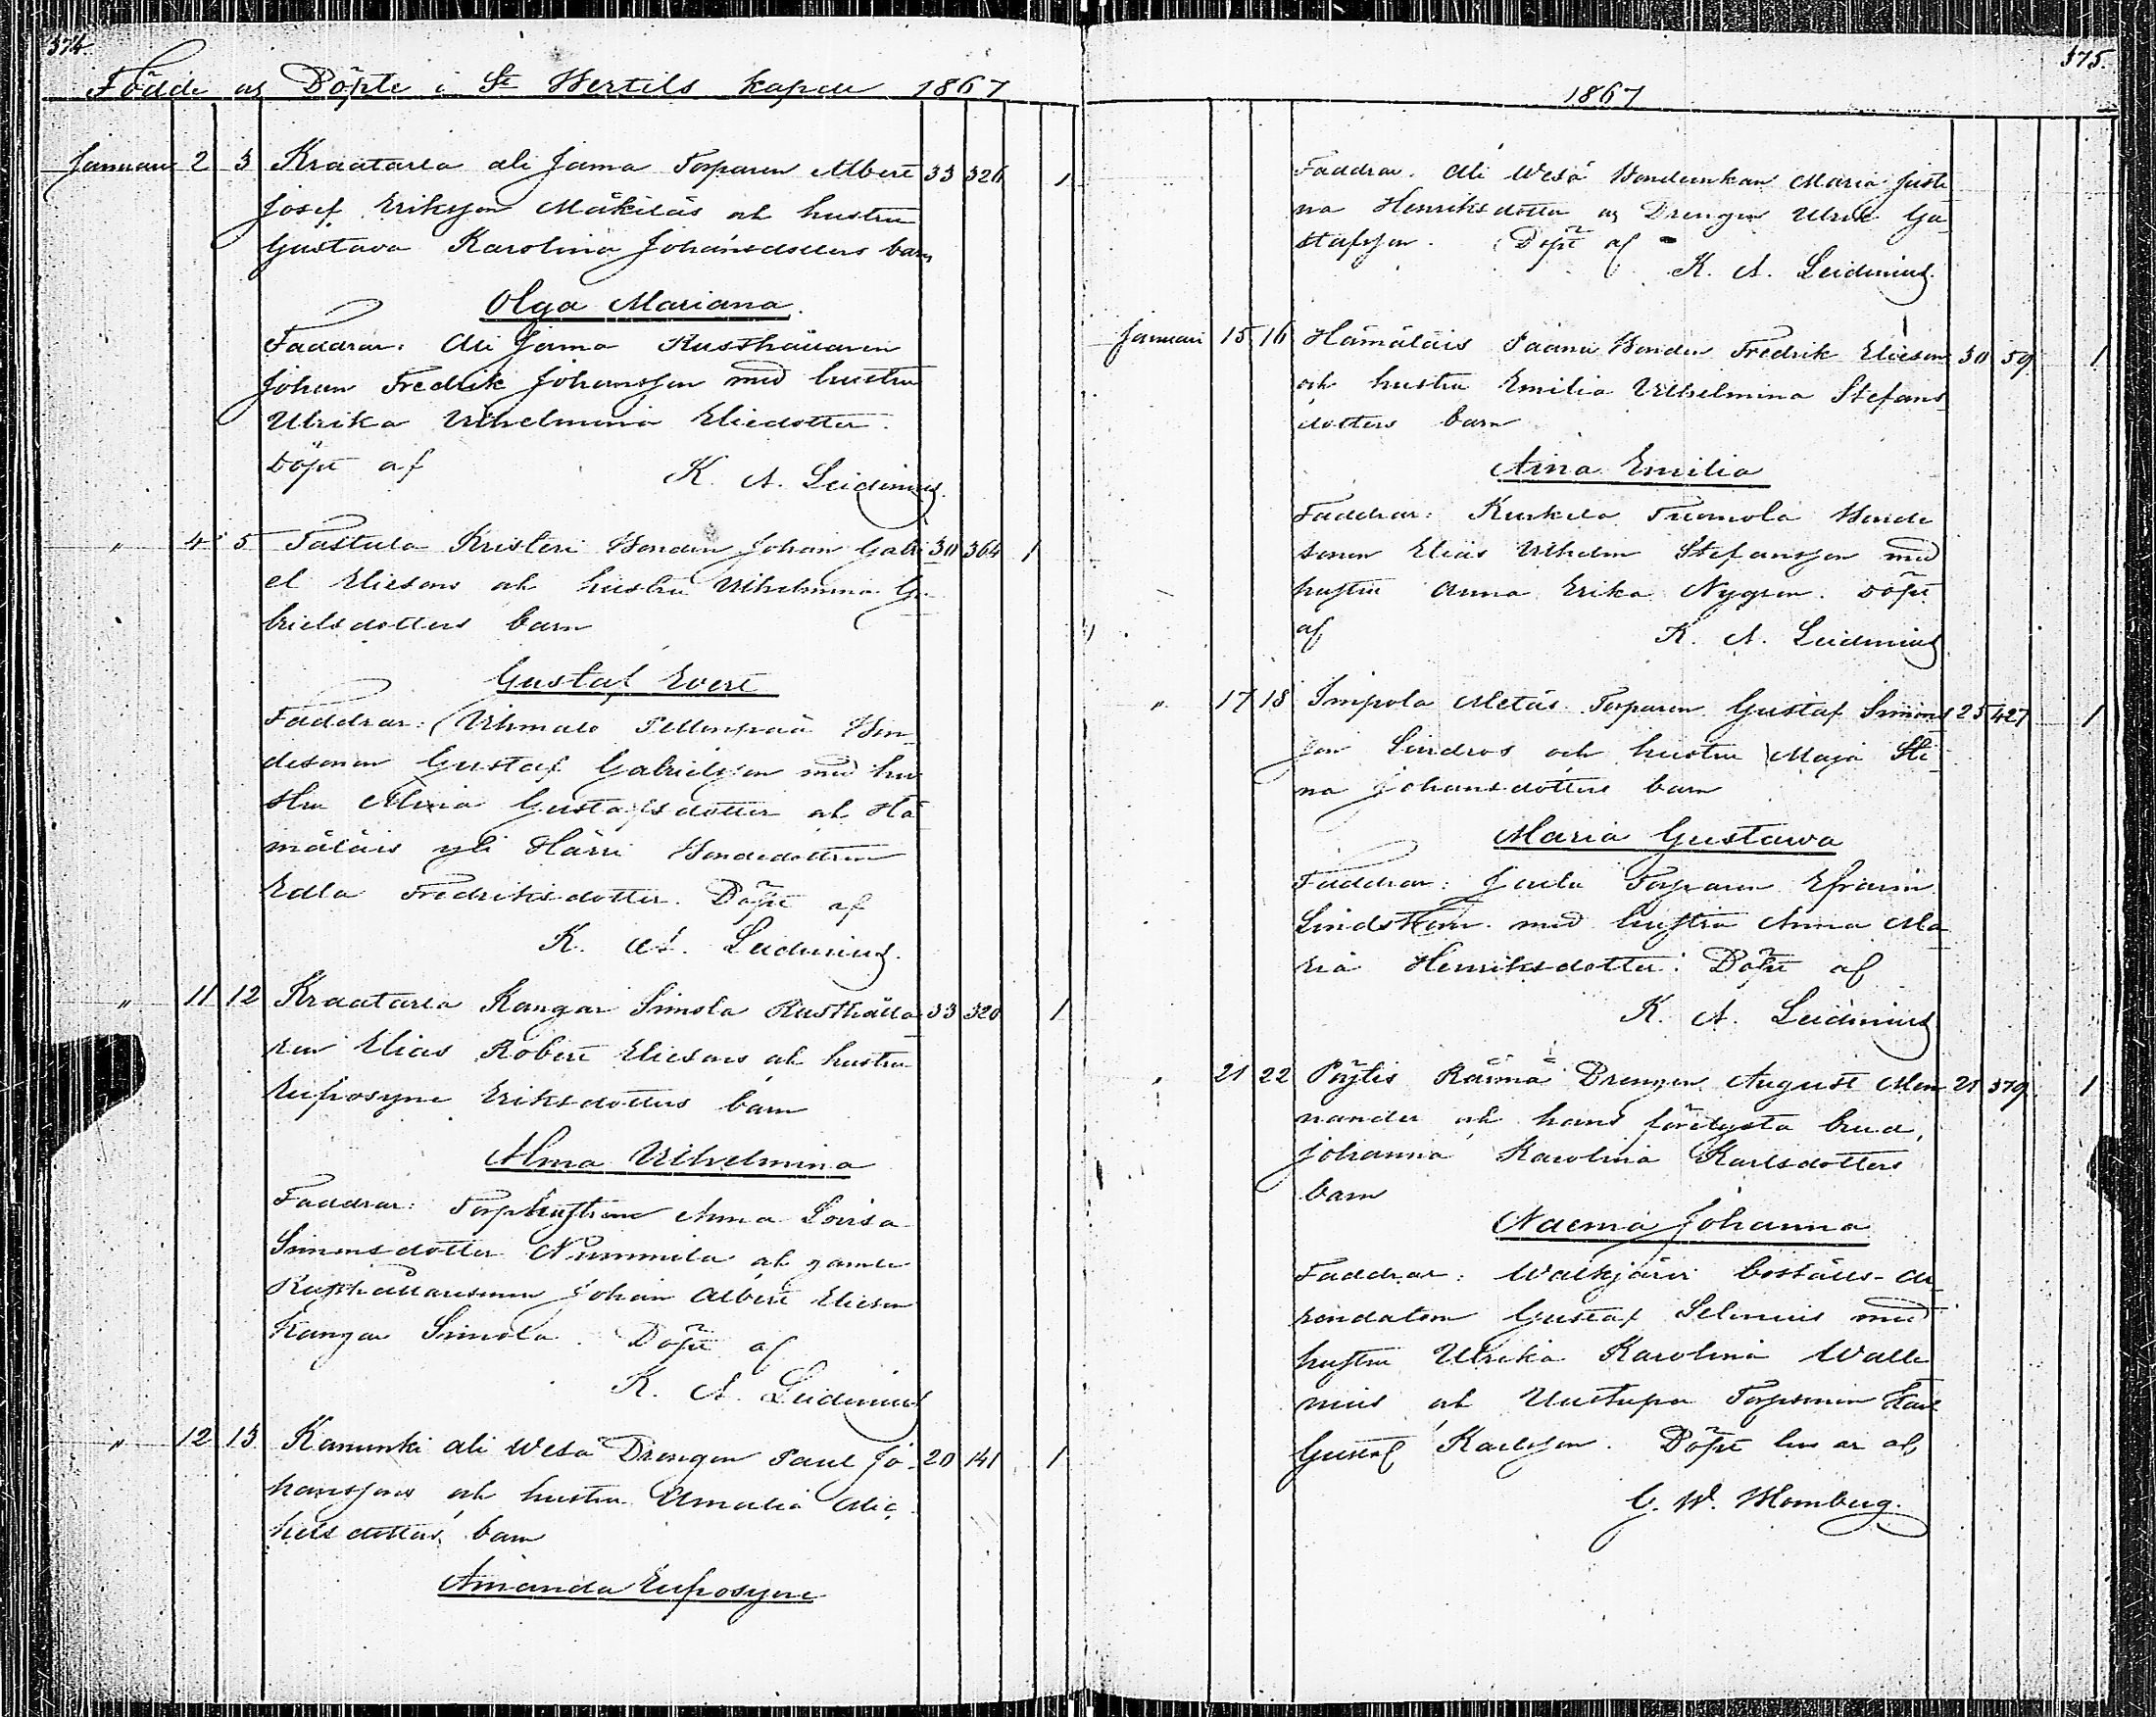 374.
Födde og Döpte i St Bertils kapell 1867
Januari 2 3 Kraatarla ali Jama Torparen Albert 33 326 1
Josef Eriksson Mäkiläs och hustru
Gustava Karolina Johansdotters barn
Olga Mariana.
Faddrar: Ali Jama Rusthållaren
Johan Fredrik Johansson med hustru
Ulrika Vilhelmina Eliedotter.
Döpt af
K. A. Leidenius.
" 4 5 Pastula Kristeri Bonden Johan Gabri 30 364 1
el Eliesons och hustru Vilhelmina Ga-
brielsdotters barn
Gustaf Evert
Faddrar: Vihmalo Pellonpää Bon-
desonen Gustaf Gabrielsson med hu
stru Maria Gustafsdotter och Hä
mäläis yli Härri Bondedottren
Edla Fredriksdotter. Döpt af
K. A. Leidenius.
" 11 12 Kraatarla Kangar Simola Rusthålla 33 320 1
ren Elias Robert Eliesons och hustru
Eufrosyne Eriksdotters barn
Alma Vilhelmina
Faddrar: Torphustrun Anna Lovisa
Simonsdotter Nummila och gamle
Rusthållaresonen Johan Albert Elieson
Kangar Simola. Döpt af
K. A. Leidenius
" 12 13 Kanunki ali Wesa Drengen Paul Jo- 20 141 1
hanssons och hustru Amalia Mic
helsdotters barn
Amanda Eufrosyne
375.
1867
Faddrar. Ali Wesa Bondeenkan Maria Justi
na Henriksdotter og Drengen Ulrik Gu
stafsson. Döpt af
K. A. Leidenius.
Januari 15 16 Hämäläis Paanu Bonden Fredrik Eliesons 30 59 1
och hustru Emilia Vilhelmina Stefans
dotters barn
Aina Emilia
Faddrar: Kurkela Tuomola Bonde
sonen Elias Vilhelm Stefansson med
hustru Anna Erika Nygren. Döpt
af K. A. Leidenius
" 17 18 Impola Metäs Torparen Gustaf Simons 25 427 1
son Lindros och hustru Maja Sti
na Johansdotters barn
Maria Gustawa
Faddrar: Torparen Efraim
Lindström med hustru Anna Ma
ria Henriksdotter. Döpt af
K. A. Leidenius
" 21 22 Pöytis Rännä Drengen August Men 21 379 1
nander och hans förelysta brud,
Johanna Karolina Karlsdotters
barn
Naema Johanna
Faddrar: Walkjärvi boställs-ar
rendatorn Gustaf Selenius med
hustru Ulrika Karolina Walle
nius och Uustupa Torpsonen Karl
Gustaf Karlsson. Döpt af
C. W. Blomberg.